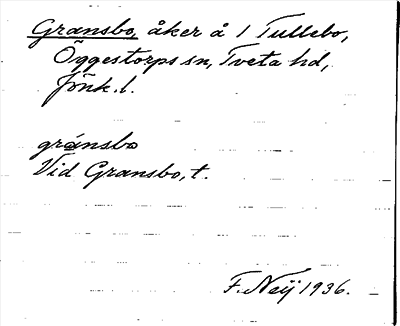 Gransbo, åker å 1 Tullebo,
Öggestorps sn, Tveta hd,
Jönk. l.
gránsbo
Vid Gransbo, t.
F. Neij 1936.